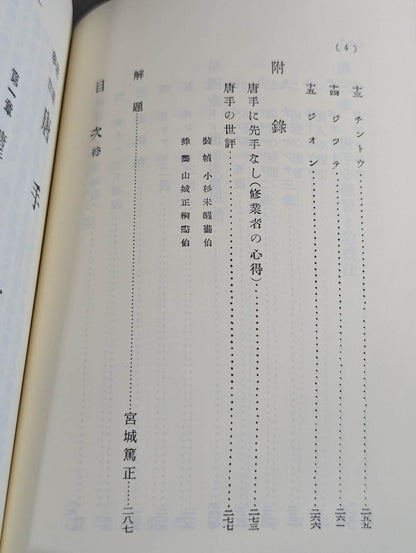 (4)
十三 チントウ……二五五
十四 ジツテ……二六一
十五 ジオン……二六六
附錄
唐手に先手なし(修業者の心得)……二七三
唐手の世評……二七七
裝幀 小杉未醒畵伯
揷畵 山城正 伯
解題……宮城篤正…二八七
目次終
手
第一